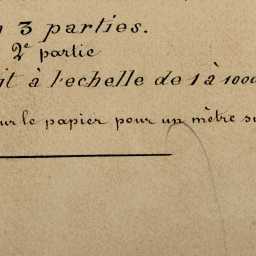 3 parties.
2e partie
it à l'echelle de 1 à 1000
ur le papier pour un mètre su